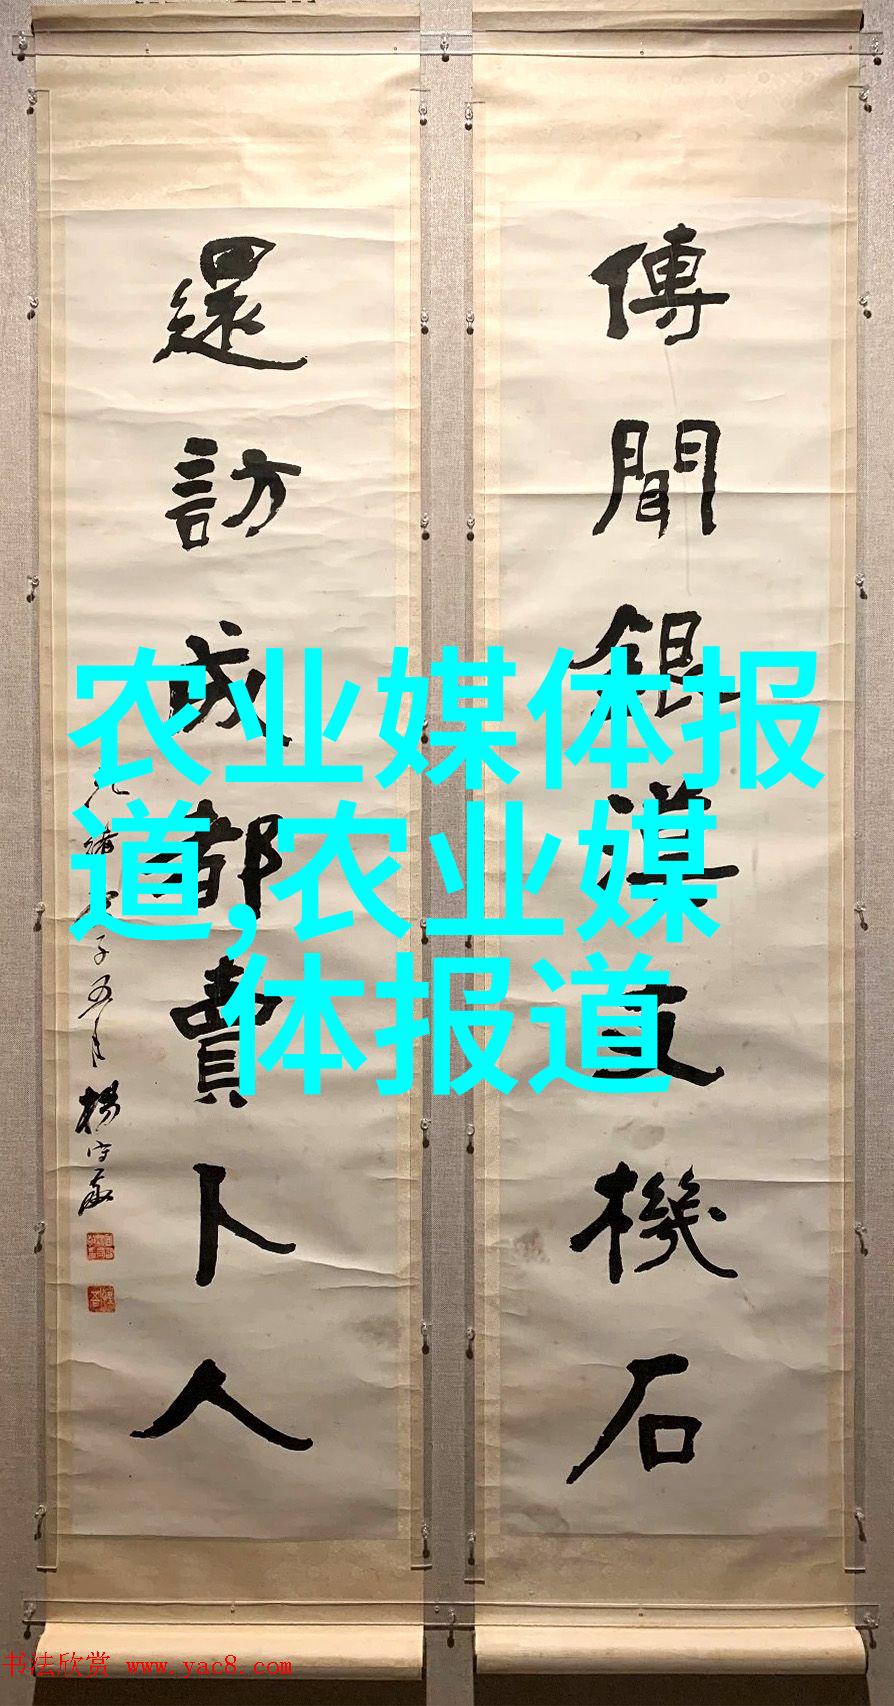 傳聞銀漢支機石
還訪成都賣卜人
楊守敬
农业媒体报
道,农业媒
体报道
书法欣赏 www.yac8.com